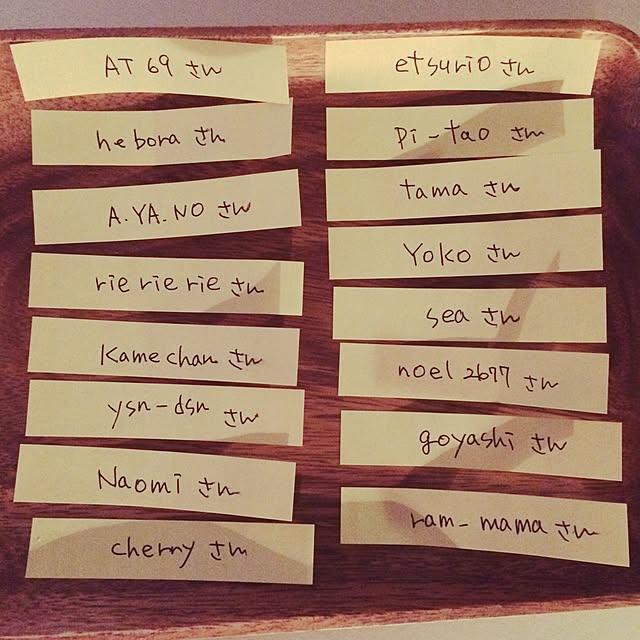 AT 69 さん
hebora さん
A.YA.NO さん
rie rie rie さん
Kamechan さん
ysn-dsn さん
Naomi さん
cherry さん
etsurio さん
Pi-tao さん
tama さん
Yoko さん
sea さん
noel 2677 さん
goyashi さん
ram-mama さん